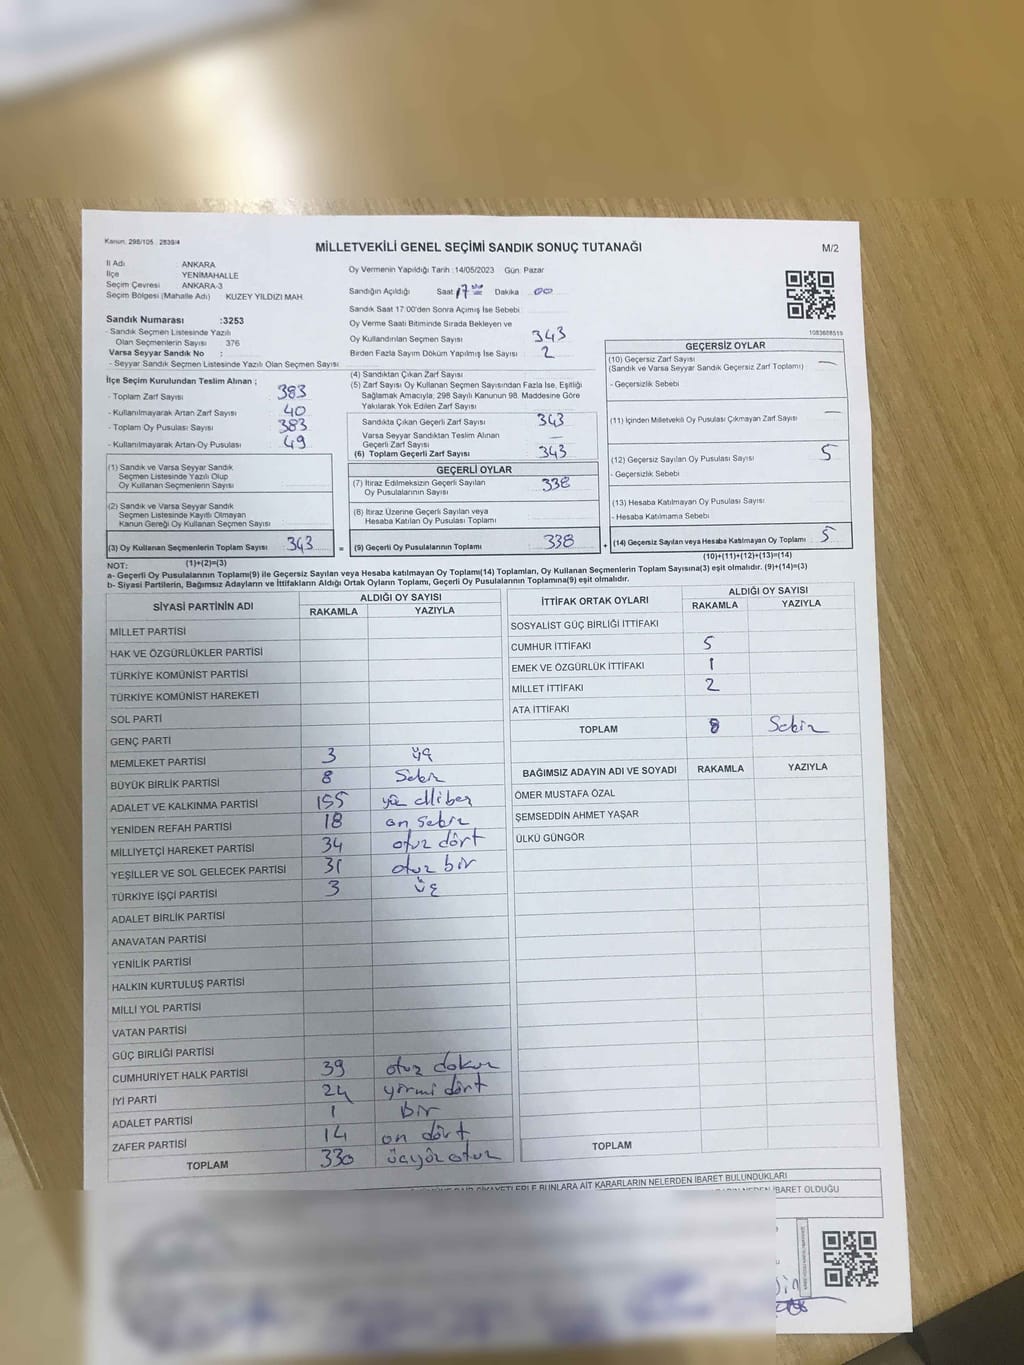 Kanun: 298/105 , 2839/4
MİLLETVEKİLİ GENEL SEÇİMİ SANDIK SONUÇ TUTANAĞI
M/2
İl Adı : ANKARA
İlçe YENİMAHALLE
Seçim Çevresi : ANKARA-3
Seçim Bölgesi (Mahalle Adı) : KUZEY YILDIZI MAH.
Sandık Numarası :3253
- Sandık Seçmen Listesinde Yazılı
Olan Seçmenlerin Sayısı : 376
Varsa Seyyar Sandık No :
- Seyyar Sandık Seçmen Listesinde Yazılı Olan Seçmen Sayısı :
İlçe Seçim Kurulundan Teslim Alınan ;
- Toplam Zarf Sayısı : 383
- Kullanılmayarak Artan Zarf Sayısı : 40
- Toplam Oy Pusulası Sayısı : 383
- Kullanılmayarak Artan Oy Pusulası : 49
(1) Sandık ve Varsa Seyyar Sandık
Seçmen Listesinde Yazılı Olup
Oy Kullanan Seçmenlerin Sayısı :
(2) Sandık ve Varsa Seyyar Sandık
Seçmen Listesinde Kayıtlı Olmayan
Kanun Gereği Oy Kullanan Seçmen Sayısı :
(3) Oy Kullanan Seçmenlerin Toplam Sayısı : 343
Oy Vermenin Yapıldığı Tarih :14/05/2023 Gün: Pazar
Sandığın Açıldığı Saat: 17 Dakika : 00
Sandık Saat 17:00'den Sonra Açımış İse Sebebi :
Oy Verme Saati Bitiminde Sırada Bekleyen ve
Oy Kullandırılan Seçmen Sayısı : 343
Birden Fazla Sayım Döküm Yapılmış İse Sayısı : 2
(4) Sandıktan Çıkan Zarf Sayısı :
(5) Zarf Sayısı Oy Kullanan Seçmen Sayısından Fazla İse, Eşitliği
Sağlamak Amacıyla; 298 Sayılı Kanunun 98. Maddesine Göre
Yakılarak Yok Edilen Zarf Sayısı :
Sandıkta Çıkan Geçerli Zarf Sayısı : 343
Varsa Seyyar Sandıktan Teslim Alınan
Geçerli Zarf Sayısı : —
(6) Toplam Geçerli Zarf Sayısı : 343
GEÇERLİ OYLAR
(7) İtiraz Edilmeksizin Geçerli Sayılan
Oy Pusulalarının Sayısı : 338
(8) İtiraz Üzerine Geçerli Sayılan veya
Hesaba Katılan Oy Pusulası Toplamı :
= (9) Geçerli Oy Pusulalarının Toplamı : 338
1083608519
GEÇERSİZ OYLAR
(10) Geçersiz Zarf Sayısı
(Sandık ve Varsa Seyyar Sandık Geçersiz Zarf Toplamı) : —
- Geçersizlik Sebebi :
(11) İçinden Milletvekili Oy Pusulası Çıkmayan Zarf Sayısı : —
(12) Geçersiz Sayılan Oy Pusulası Sayısı : 5
- Geçersizlik Sebebi :
(13) Hesaba Katılmayan Oy Pusulası Sayısı :
- Hesaba Katılmama Sebebi :
+ (14) Geçersiz Sayılan veya Hesaba Katılmayan Oy Toplamı : 5
NOT: (1)+(2)=(3)
(10)+(11)+(12)+(13)=(14)
a- Geçerli Oy Pusulalarının Toplamı(9) ile Geçersiz Sayılan veya Hesaba katılmayan Oy Toplamı(14) Toplamları, Oy Kullanan Seçmenlerin Toplam Sayısına(3) eşit olmalıdır. (9)+(14)=(3)
b- Siyasi Partilerin, Bağımsız Adayların ve İttifakların Aldığı Ortak Oyların Toplamı, Geçerli Oy Pusulalarının Toplamına(9) eşit olmalıdır.
SİYASİ PARTİNİN ADI ALDIĞI OY SAYISI
RAKAMLA YAZIYLA
MİLLET PARTİSİ
HAK VE ÖZGÜRLÜKLER PARTİSİ
TÜRKİYE KOMÜNİST PARTİSİ
TÜRKİYE KOMÜNİST HAREKETİ
SOL PARTİ
GENÇ PARTİ
MEMLEKET PARTİSİ 3 üç
BÜYÜK BİRLİK PARTİSİ 8 Sekiz
ADALET VE KALKINMA PARTİSİ 155 yüz elli beş
YENİDEN REFAH PARTİSİ 18 on sekiz
MİLLİYETÇİ HAREKET PARTİSİ 34 otuz dört
YEŞİLLER VE SOL GELECEK PARTİSİ 31 otuz bir
TÜRKİYE İŞÇİ PARTİSİ 3 üç
ADALET BİRLİK PARTİSİ
ANAVATAN PARTİSİ
YENİLİK PARTİSİ
HALKIN KURTULUŞ PARTİSİ
MİLLİ YOL PARTİSİ
VATAN PARTİSİ
GÜÇ BİRLİĞİ PARTİSİ
CUMHURİYET HALK PARTİSİ 39 otuz dokuz
İYİ PARTİ 24 yirmi dört
ADALET PARTİSİ 1 bir
ZAFER PARTİSİ 14 on dört
TOPLAM 330 üçyüz otuz
İTTİFAK ORTAK OYLARI ALDIĞI OY SAYISI
RAKAMLA YAZIYLA
SOSYALİST GÜÇ BİRLİĞİ İTTİFAKI
CUMHUR İTTİFAKI 5
EMEK VE ÖZGÜRLÜK İTTİFAKI 1
MİLLET İTTİFAKI 2
ATA İTTİFAKI
TOPLAM 8 Sekiz
BAĞIMSIZ ADAYIN ADI VE SOYADI RAKAMLA YAZIYLA
ÖMER MUSTAFA ÖZAL
ŞEMSEDDİN AHMET YAŞAR
ÜLKÜ GÜNGÖR
TOPLAM
AİT KARARLARIN NELERDEN İBARET BULUNDUKLARI
İBARET OLDUĞU